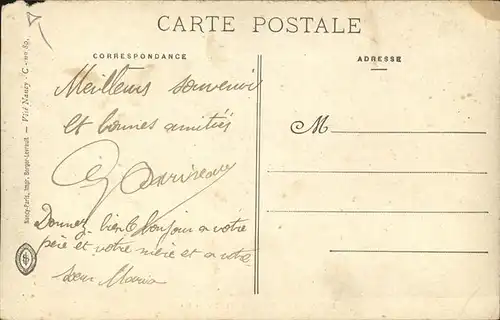 CARTE POSTALE
CORRESPONDANCE
ADRESSE
Meilleurs souvenir
et bonnes amitiés
Donnez bien le bonjour a votre
père et votre mère et a votre
sœur Maria
M
Nancy-Paris, Imp. Berger-Levrault — Visé Nancy - C - no 89.